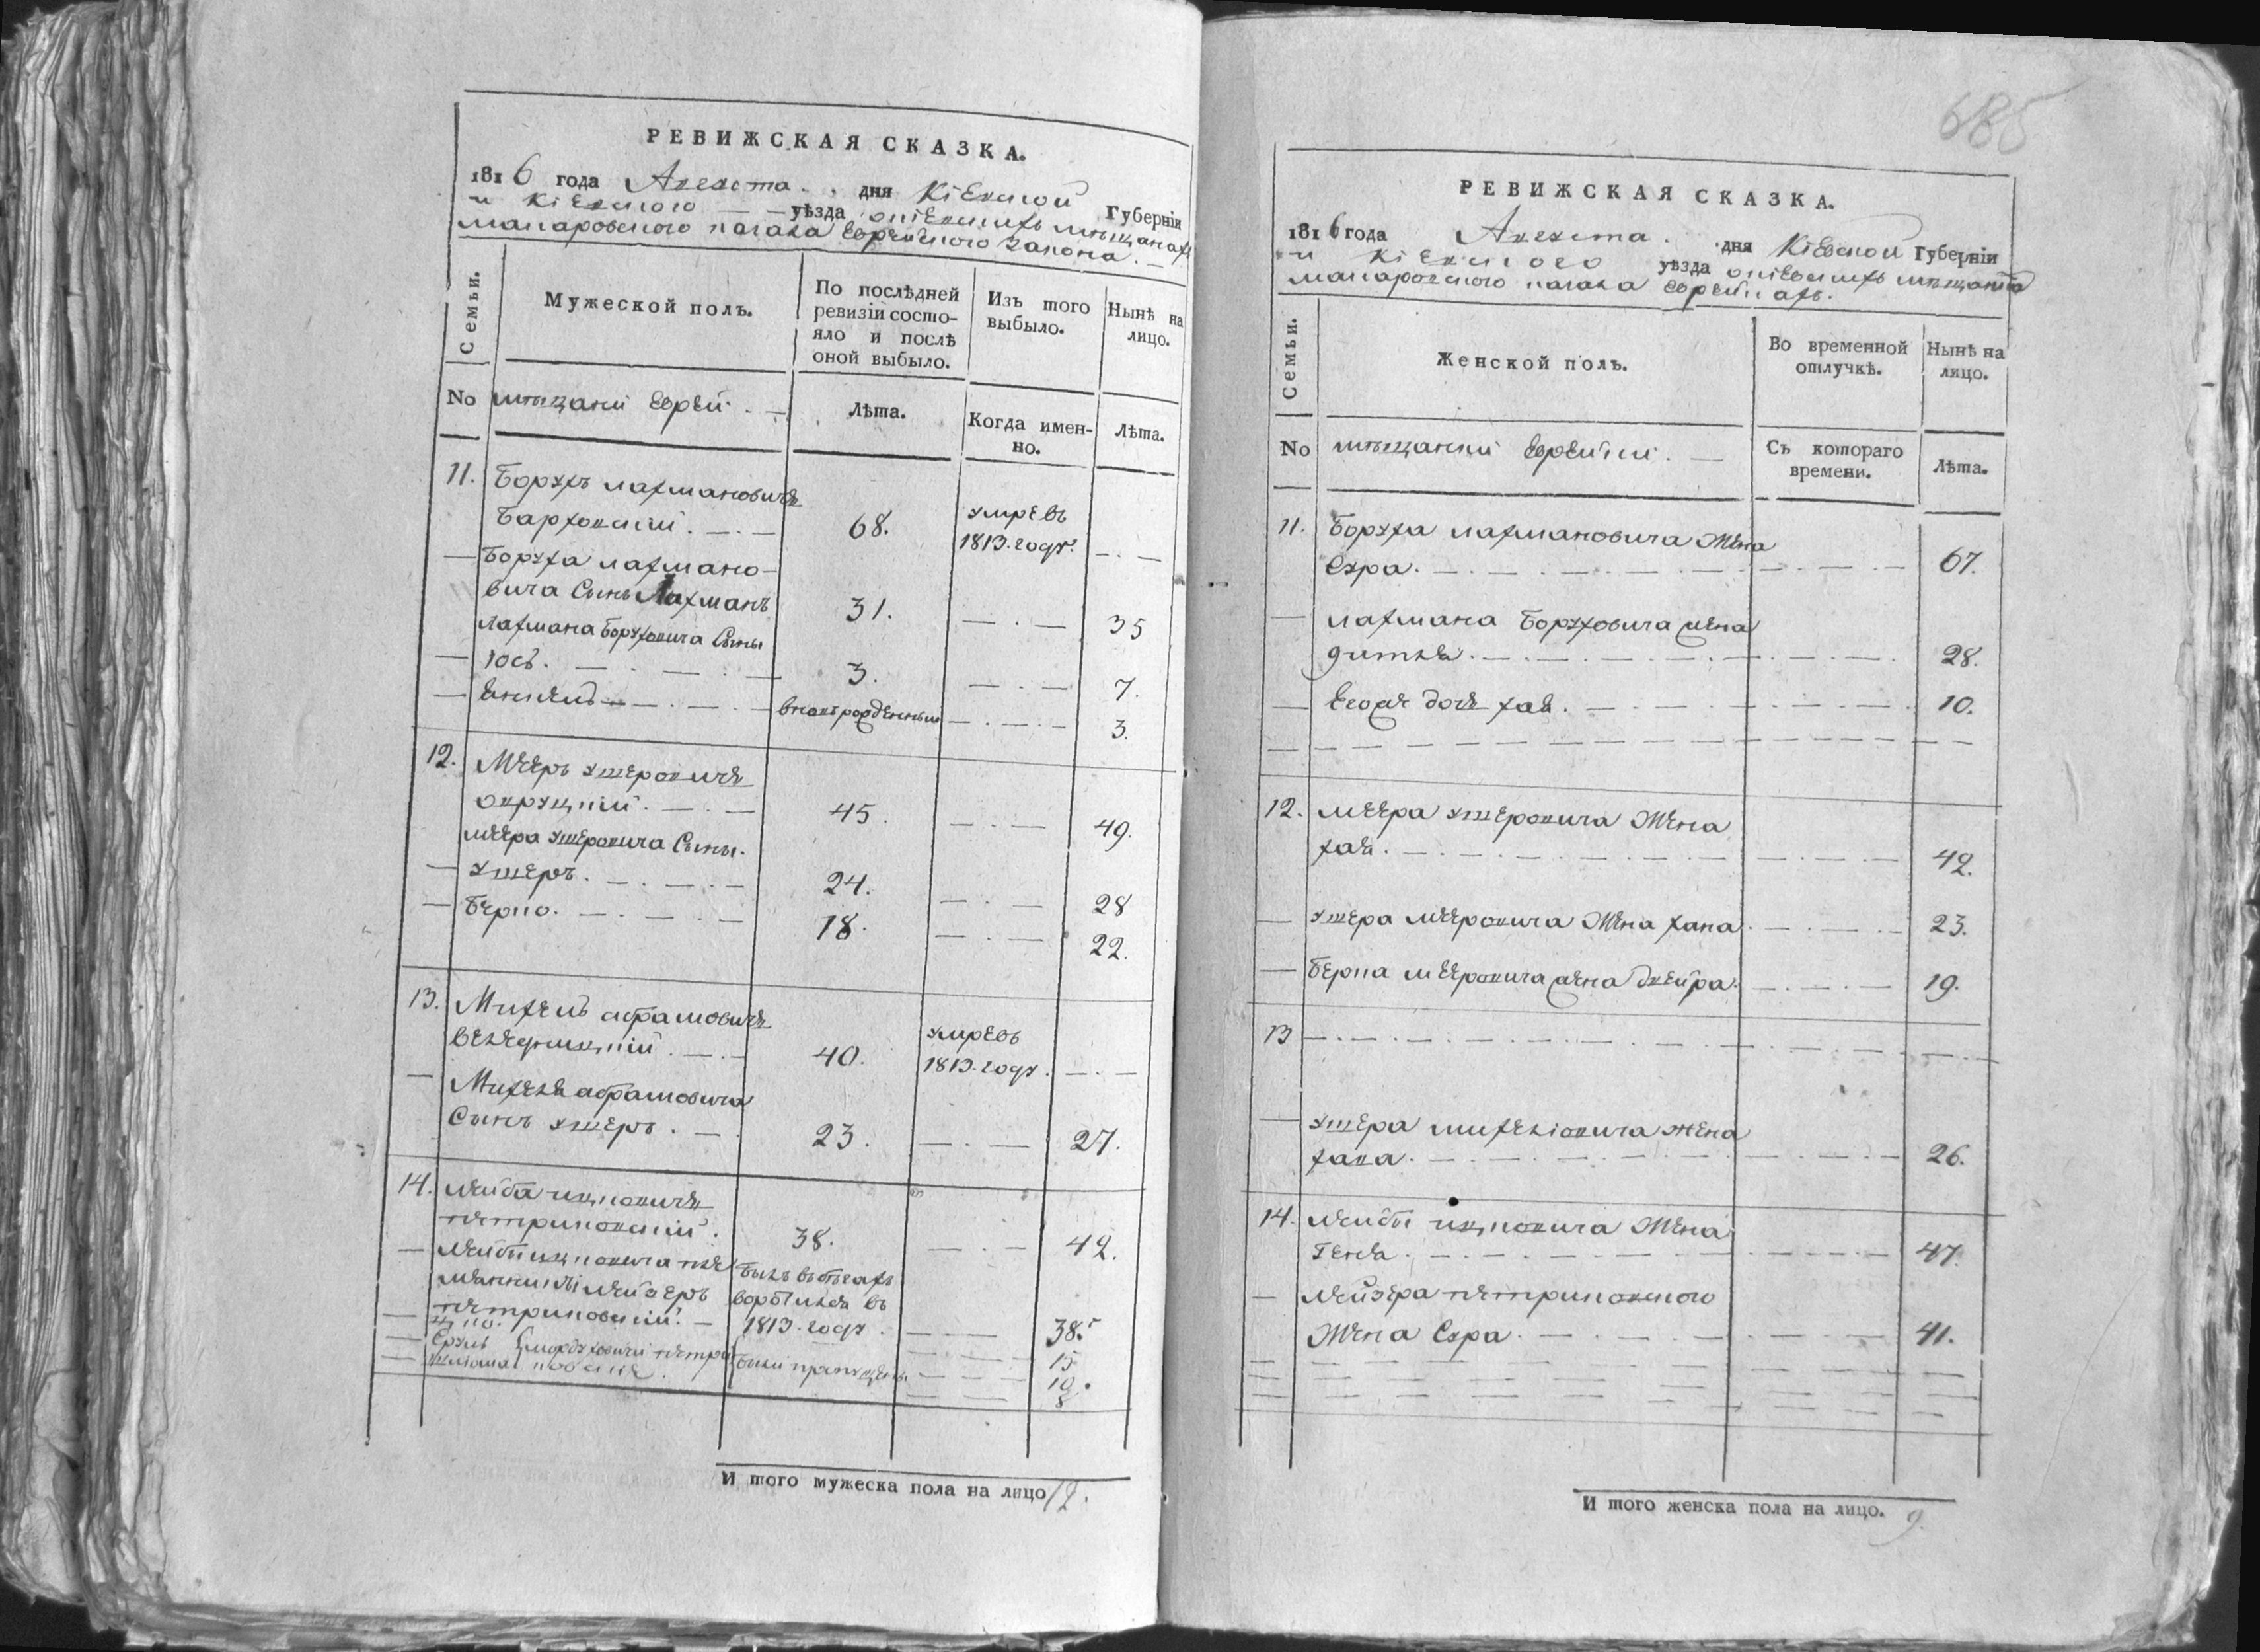 РЕВИЖСКАЯ СКАЗКА.
1816 года Августа . . дня Кіевской Губерніи
и Кіевского — — уѣзда о кіевскихъ мѣщанахъ
макаровского кагала Еврейского закона. —
Семьи.
Мужеской полъ.
По послѣдней ревизіи состояло и послѣ оной выбыло.
Изъ того выбыло.
Нынѣ на лицо.
No мѣщани Еврей . —
Лѣта.
Когда именно.
Лѣта.
11. Борухъ лахмановичъ
Барховскій . — . — 68. умре въ 1813. году. — . —
— Боруха лахмано-
вича Сынъ Лахманъ 31. — . — 35
лахмана Боруховича Сыны
— Юсь. — . — . — 3. — . — 7.
— Янкель — . — . — вновърожденный — . — . — 3.
12. Мееръ ушеровичъ
овруцкій . — . — 45. — . — 49.
меера ушеровича Сыны.
— ушеръ . — . — . — 24. — . — 28
— Берко. — . — . — 18. — . — 22.
13. Михель абрамовичъ
 . — . — 40. умре въ 1813. году . — . —
— Михеля абрамовича
Сынъ ушеръ . — . 23. — . — 27.
14. лейба ицковичъ
петриковскій . 38. — . — 42.
— лейбы ицковича пле-
мянникъ лейзеръ
петриковскій. — былъ въ бегахъ воротился въ 1813. году . — . — 38.
— 15
— Сруль 19.
— 8
были пропущены
И того мужеска пола на лицо 12.
685
РЕВИЖСКАЯ СКАЗКА.
1816 года Августа . . дня Кіевской Губерніи
и Кіевского уѣзда о кіевскихъ мѣщанахъ
макаровского кагала Еврейкахъ.
Семьи.
Женской полъ.
Во временной отлучкѣ.
Нынѣ на лицо.
No мѣщанки Еврейки . —
Съ котораго времени.
Лѣта.
11. Боруха лахмановича Жена
Сура. — . — . — 67.
— лахмана Боруховича жена
дитля. — . — . — 28.
— Егоже дочь хая. — . — . — 10.
12. меера ушеровича Жена
хая. — . — . — 42.
— ушера мееровича Жена хана. — . — . — 23.
— Берка мееровича жена двейра. — . — . — 19.
13 — . — . — . —
— ушера михеліовича жена
хава. — . — . — 26.
14. лейбы ицковича Жена
Геня. — . — . — 47.
— лейзера петриковского
Жена Сура. — . — . — 41.
И того женска пола на лицо. 9.